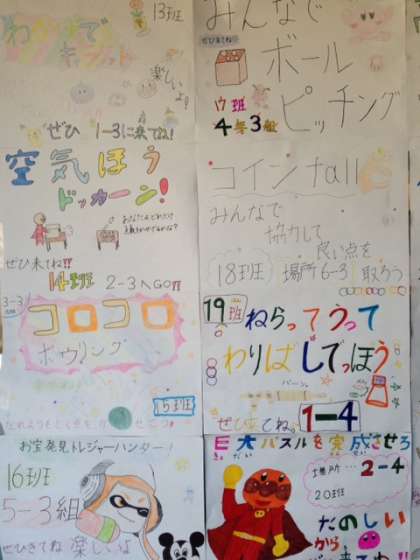 13班
楽しいよ!
ぜひ 1-3に来てね!
みんなで
ぜひ来てね♡
ボール
ピッチング
4年3組
空気ほう
ドッカーン!
ぜひ来てね!!
14班
2-3へGO!!
コインfall
みんなで
協力して
良い点を
取ろう
18班
場所6-3
3-3
コロコロ
ボウリング
15班
19班
ねらってうって
わりばしでっぽう
ぜひ来てね。
1-4
お宝発見トレジャーハンター!
16班
5-3組
ぜひきてね 楽しいよ
巨大パズルを完成させろ
きょ だい かん せい
場所…2-4
20班
たのしい
から